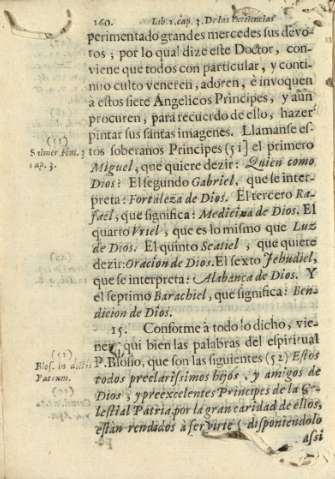 160. Lib. 1. cap. 3. De las excelencias
perimentado grandes mercedes sus devo-
tos; por lo qual dize este Doctor, con-
viene que todos con particular, y conti-
nuo culto veneren, adoren, è invoquen
à estos siete Angelicos Principes, y aun
procuren, para recuerdo de ello, hazer
pintar sus santas imagenes. Llamanse es-
tos soberanos Principes (51) el primero
Miguel, que quiere dezir: Quien como
Dios: El segundo Gabriel, que se inter-
preta: Fortaleza de Dios. El tercero Ra-
fael, que significa: Medicina de Dios. El
quarto Vriel, que es lo mismo que Luz
de Dios. El quinto Seatiel, que quiere
dezir: Oracion de Dios. El sexto Jehudiel,
que se interpreta: Alabança de Dios. Y
el septimo Barachiel, que significa: Ben-
dicion de Dios.
15. Conforme à todo lo dicho, vie-
nen aqui bien las palabras del espiritual
P. Blosio, que son las siguientes (52) Estos
todos preclarissimos hijos, y amigos de
Dios, y preexcelentes Principes de la Ce-
lestial Patria, por la gran caridad de ellos,
estàn rendidos à servirte, disponiendolo
assi
(51)
cap. 3.
(52)
Blos. in
Patrum.